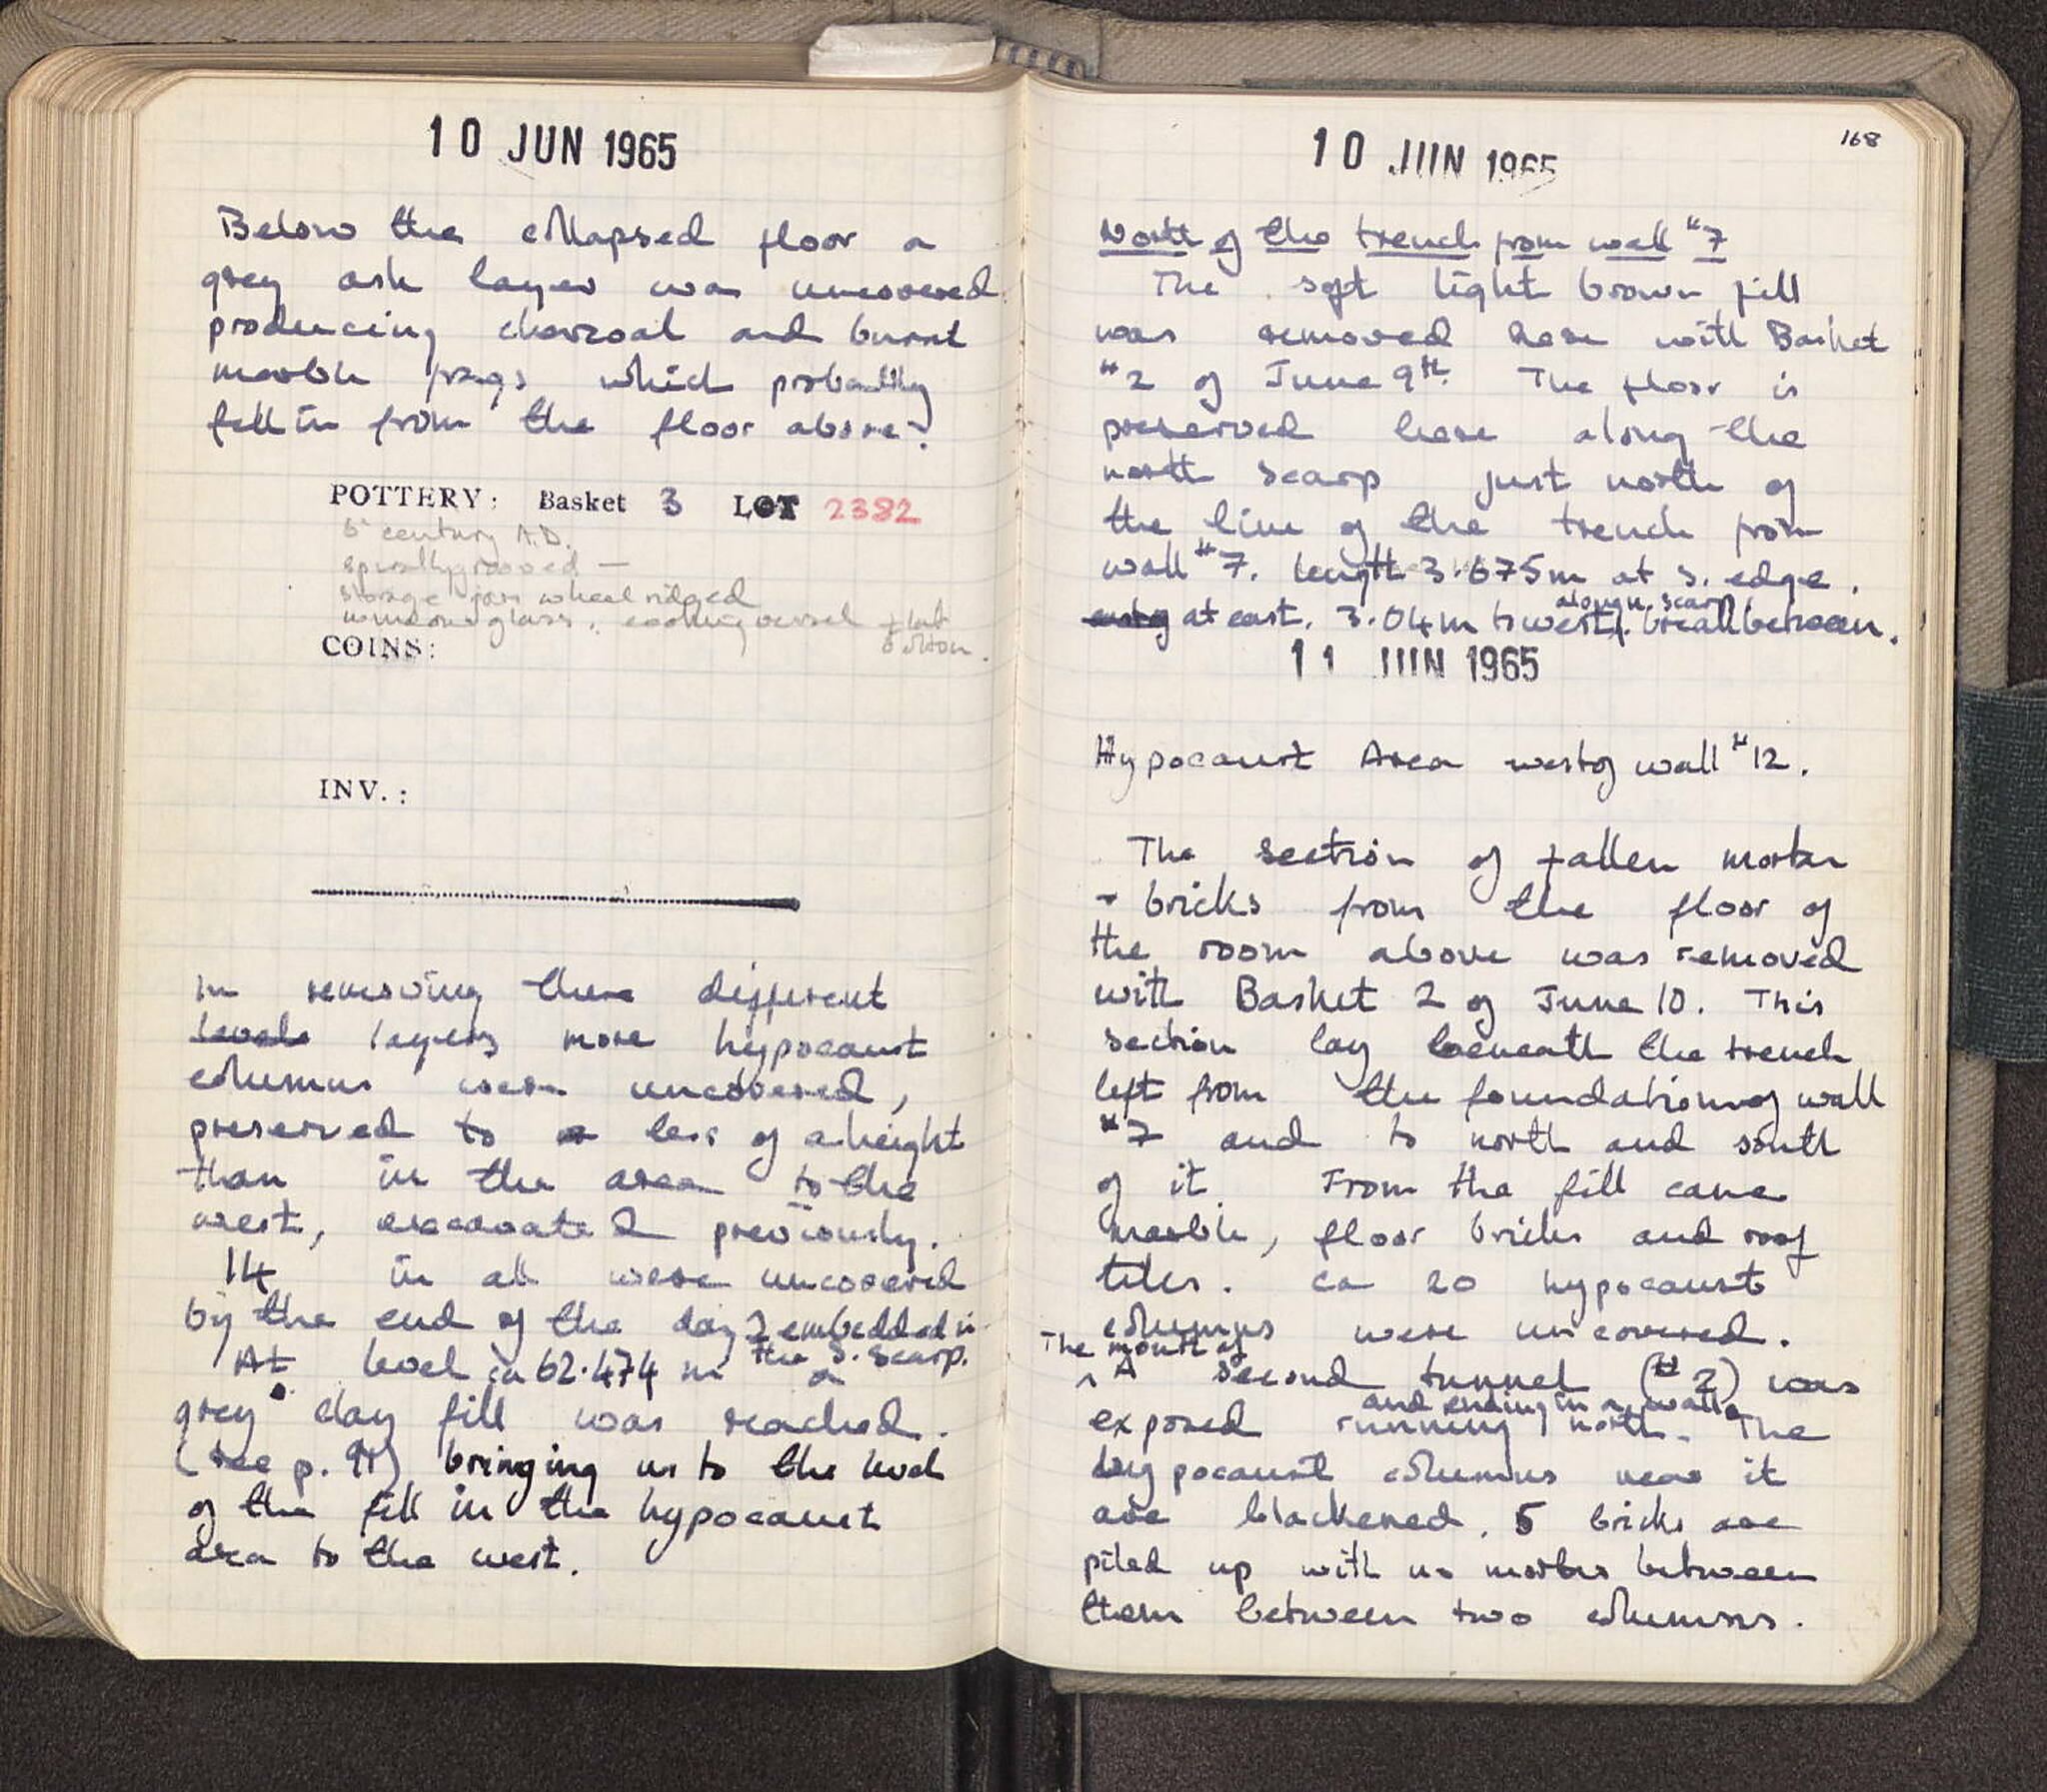 10 JUN 1965
Below the collapsed floor a
grey ash layer was uncovered
producing charcoal and burnt
marble frags which probably
fell in from the floor above.
POTTERY: Basket 3 LOT 2382
century A.D.
spirally grooved —
storage jars wheel ridged
window glass, cooking vessel flat
bottom.
COINS:
INV.:
In removing these different
levels layers more hypocaust
columns were uncovered,
preserved to less of a height
than in the area to the
west, excavated previously.
14 in all were uncovered
by the end of the day 2 embedded in
the S. scarp.
At level ca 62.474 m a
grey clay fill was reached.
(see p. 91) bringing us to the level
of the fill in the hypocaust
area to the west.
168
10 JUN 1965
North of the trench from wall #7
The soft light brown fill
was removed here with Basket
#2 of June 9th. The floor is
preserved here along the
north scarp just north of
the line of the trench from
wall #7. length 3.675m at S. edge.
along n. scarp
at east. 3.04m to west. break between.
11 JUN 1965
Hypocaust Area west of wall #12.
The section of fallen mortar
+ bricks from the floor of
the room above was removed
with Basket 2 of June 10. This
section lay beneath the trench
left from the foundation of wall
#7 and to north and south
of it. From the fill came
marble, floor bricks and roof
tiles. ca 20 hypocaust
columns were uncovered.
The mouth of
A second tunnel (#2) was
and ending in n. wall
exposed running north. The
hypocaust columns near it
are blackened. 5 bricks are
piled up with no mortar between
them between two columns.